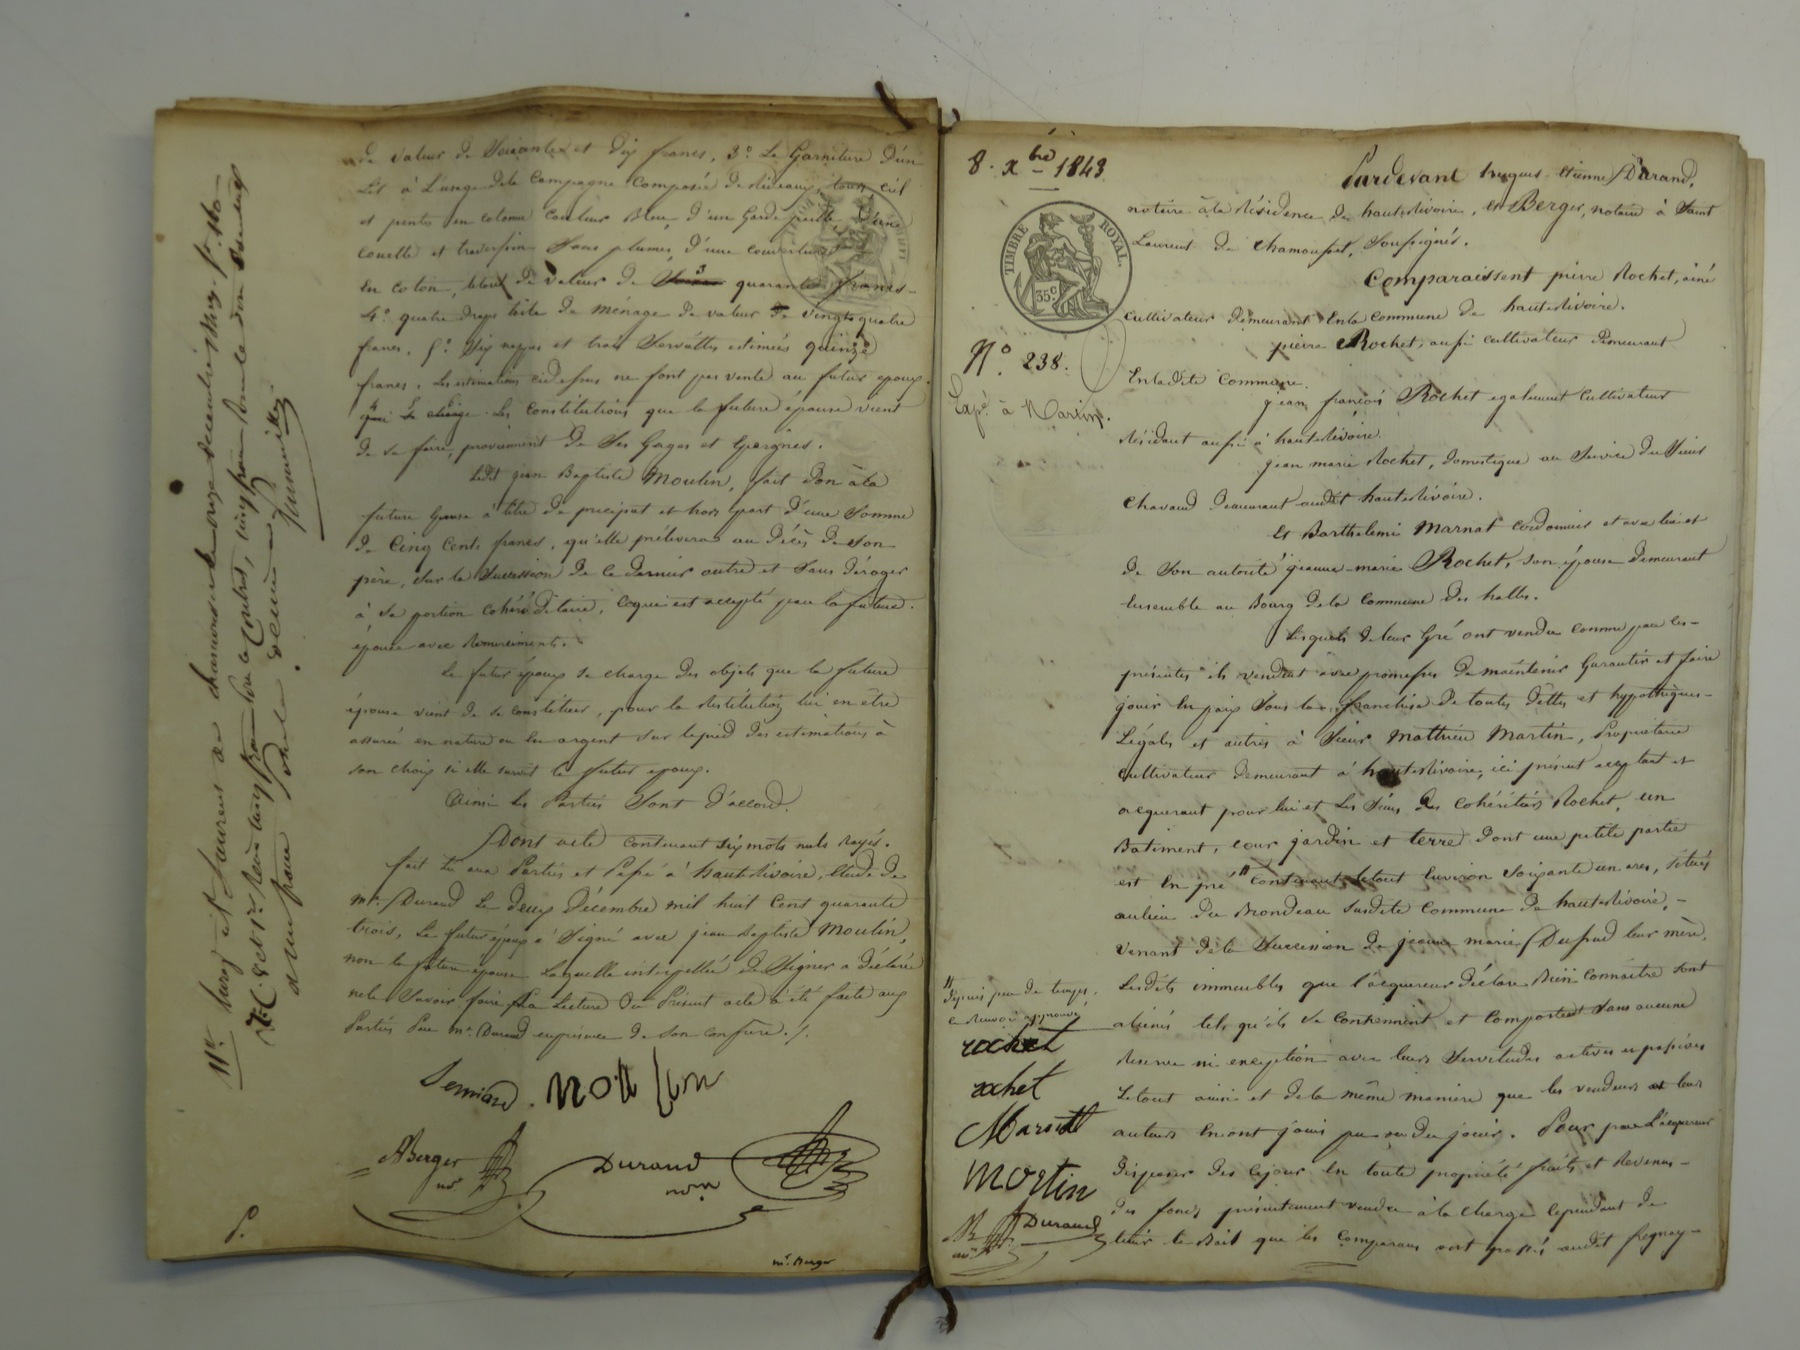 de valeur de Soixante et dix francs, 3.o La Garniture d'un
Lit à l'usage dela Campagne Composée de rideaux, tour, ciel
et pente en colonne couleur Bleu, d'un Garde paille, d'une
couette et traversin Sans plumes, d'une couverture
en coton, letout de valeur de quarante francs-
4.o quatre draps toile de ménage de valeur de vingtquatre
francs, 5.o Six nappes et trois Serviettes estimées quinze
francs. Les estimations cidessus ne font pas vente au futur epoux.
Les Constitutions que la future épouse vient
de se faire, proviennent de Ses Gages et Epargnes.
Ledit jean Baptiste Moulin, fait don àla
future épouse à titre de preciput et hors part d'une Somme
de Cinq Cents francs, qu'elle prélevera au décès de Son
père, Sur la Succession de ce dernier outre et Sans déroger
à Sa portion cohéréditaire, cequi est accepté par la future.
épouse avec Remerciments.
Le futur époux se charge des objets que la future
épouse vient de se constituer, pour la Restitution lui en être
assurée en nature ou en argent Sur lepied des estimations à
son choix si elle survit le futur epoux.
Ainsi les Parties Sont d'accord.
Dont acte contenant Six mots nuls rayés.
fait lu aux Parties et Passé à hauterivoire, Etude de
Mr. Durand Le deux Décembre mil huit Cent quarante
trois, Le futur époux a Signé avec jean Baptiste Moulin,
non la future épouse Laquelle interpellée de Signer a déclaré
nele Savoir faire La Lecture du Présent acte a été faite aux
Parties Par Mr. Durand enprésence de Son confrère ./.
moulin
ABerger
nre
Durand
nore
mr. Berger
St Laurent de chamousset le onze decembre 1843. fo. 160
8. Xbre 1843
TIMBRE ROYAL.
35c
No. 238.
Expé. à Martin.
Pardevant hugues-étienne Durand,
notaire àla Résidence de hauterivoire, et Berger, notaire à Saint
Laurent de Chamousset, Soussignés.
Comparaissent pierre Rochet, ainé
cultivateur demeurant Enla commune de hauterivoire.
pierre Rochet, aussi cultivateur demeurant
Enladite commune.
jean françois Rochet egalement Cultivateur
résidant aussi à hauterivoire.
jean marie Rochet, domestique au Service du Sieur
Chavand demeurant audit hauterivoire.
Et Barthelemi Marnat cordonnier et avec lui et
de Son autorité jeanne-marie Rochet, Son épouse demeurant
Ensemble au Bourg dela Commune des halles.
Lesquels deleur Gré ont vendu comme par ces-
présentes ils vendent avec promesses de maintenir Garantir et faire
jouir En paix Sous la franchise de toutes dettes et hypothèques-
Légales et autres à Sieur Matthieu Martin, Propriétaire
cultivateur demeurant à hauterivoire, ici présent acceptant et
acquerant pour lui et Les Siens des Cohéritiers Rochet, un
Batiment, cour jardin et terre dont une petite partie
est En pré Contenant letout Environ Soixante un ares, Situés
aulieu du Brondeau Susdite Commune de hauterivoire,-
venant dela Succession de jeanne marie Dupud leur mère.
Lesdits immeubles que l'acquereur déclare Bien connaitre Sont
aliénés tels qu'ils Se contiennent et Comportent Sans aucune
Reserve ni exception avec leurs Servitudes actives et passives
Letout ainsi et dela même manière que les vendeurs et leurs
auteurs En ont joui pu ou du jouir. Pour par L'acquereur
disposer dès cejour En toute propriété fruits et Revenus-
des fonds présentement vendus à la Charge cependant de
tenir le Bail que les Comparans ont passé audit
depuis peu de temps,
ce Renvoi approuvé
rochet
rochet
Marnat
Martin
Durand